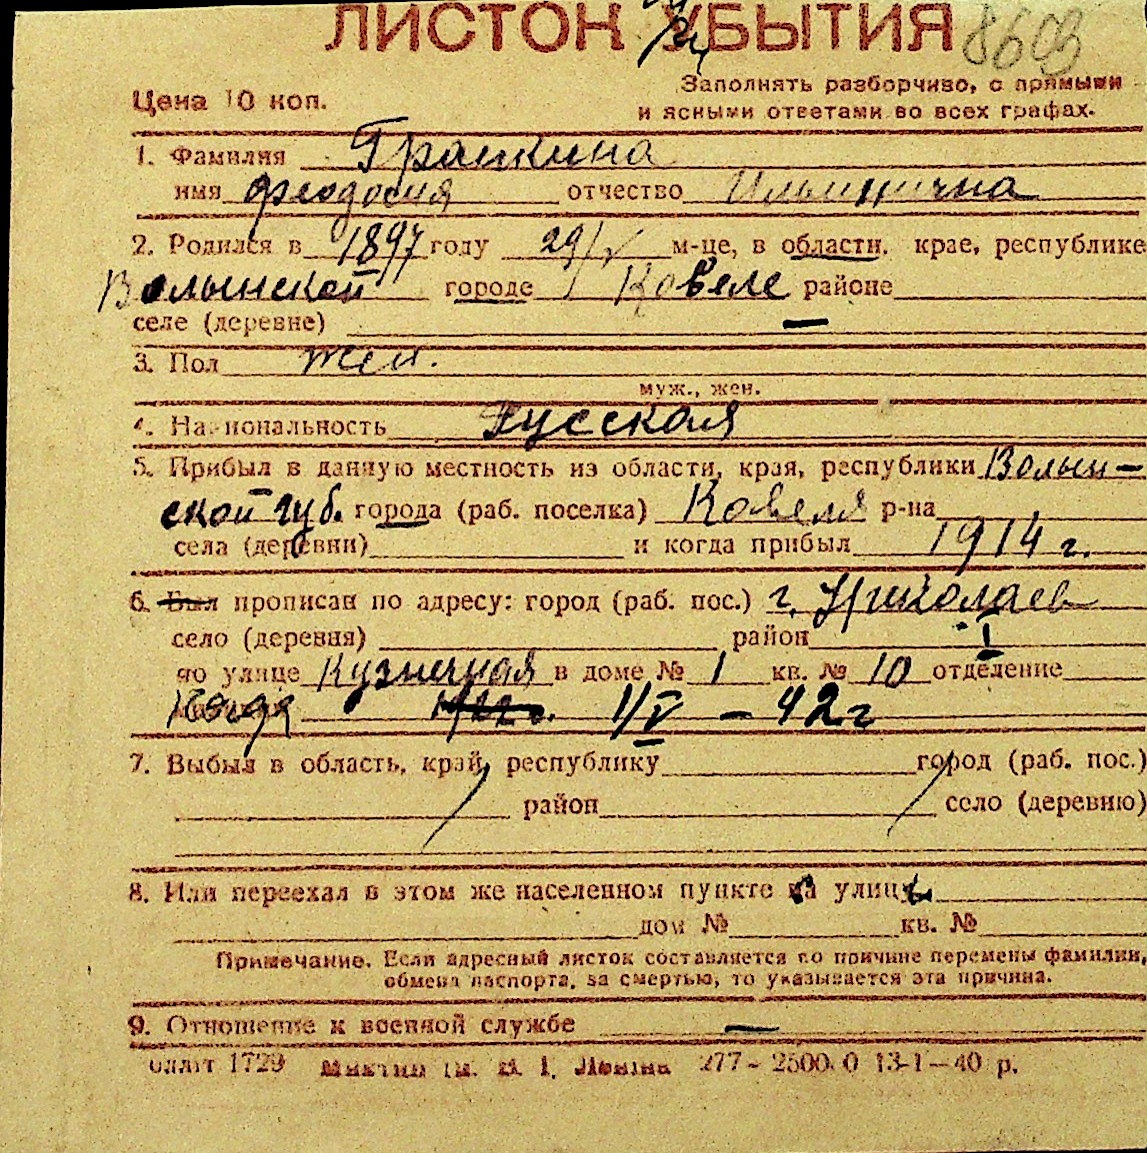 ЛИСТОК УБЫТИЯ 8603
Цена 10 коп.
Заполнять разборчиво, с прямыми
и ясными ответами во всех графах.
1. Фамилия Грашкина
имя Феодосия отчество Ильинична
2. Родился в 1897 году 29/V м-це, в области, крае, республике
Волынской городе Ковеле районе
селе (деревне) —
3. Пол жен.
муж., жен.
4. Национальность Русская
5. Прибыл в данную местность из области, края, республики Волын-
ской губ. города (раб. поселка) Ковеля р-на
села (деревни) и когда прибыл 1914 г.
6. Был прописан по адресу: город (раб. пос.) г. Николаев
село (деревня) район I
по улице Кузнечная в доме № 1 кв. № 10 отделение
когда 1/V – 42 г
7. Выбыл в область, край, республику город (раб. пос.)
район село (деревню)
8. Или переехал в этом же населенном пункте на улицу
дом № кв. №
Примечание. Если адресный листок составляется по причине перемены фамилии,
обмена паспорта, за смертью, то указывается эта причина.
9. Отношение к военной службе —
1729 277 - 2500.0 13-1-40 р.